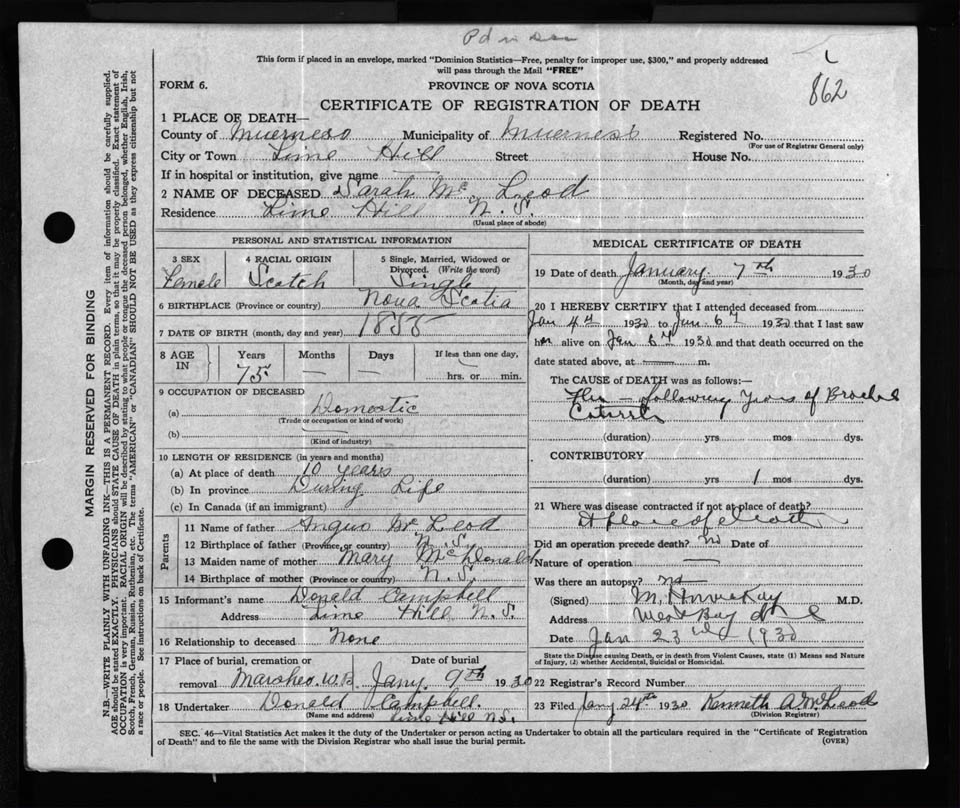 This form if placed in an envelope, marked "Dominion Statistics—Free, penalty for improper use, $300," and properly addressed
will pass through the Mail "FREE"
862
FORM 6.
PROVINCE OF NOVA SCOTIA
CERTIFICATE OF REGISTRATION OF DEATH
1 PLACE OF DEATH—
County of Inverness Municipality of Inverness Registered No.
(For use of Registrar General only)
City or Town Lime Hill Street House No.
If in hospital or institution, give name
2 NAME OF DECEASED Sarah Mc Leod
Residence Lime Hill N. S.
(Usual place of abode)
PERSONAL AND STATISTICAL INFORMATION
3 SEX 4 RACIAL ORIGIN 5 Single, Married, Widowed or Divorced. (Write the word)
Female Scotch Single
6 BIRTHPLACE (Province or country) Nova Scotia
7 DATE OF BIRTH (month, day and year)
8 AGE IN Years Months Days If less than one day,
75 — — hrs. or min.
9 OCCUPATION OF DECEASED
(a) Domestic
(Trade or occupation or kind of work)
(b)
(Kind of industry)
10 LENGTH OF RESIDENCE (in years and months)
(a) At place of death 10 years
(b) In province During Life
(c) In Canada (if an immigrant)
Parents
11 Name of father Angus Mc Leod
12 Birthplace of father (Province or country) N. S.
13 Maiden name of mother Mary McDonald
14 Birthplace of mother (Province or country) N. S.
15 Informant's name Donald Campbell
Address Lime Hill N. S.
16 Relationship to deceased None
17 Place of burial, cremation or removal Date of burial
W.B. Jany. 9th 1930
18 Undertaker Donald Campbell
(Name and address) Lime Hill N.S.
MEDICAL CERTIFICATE OF DEATH
19 Date of death January 7th 1930
(Month, day and year)
20 I HEREBY CERTIFY that I attended deceased from
Jan 4th 1930 to Jan 6th 1930 that I last saw
her alive on Jan 6th 1930 and that death occurred on the
date stated above, at — m.
The CAUSE OF DEATH was as follows:—
Flu — following years of
(duration) yrs mos dys.
CONTRIBUTORY
(duration) yrs 1 mos dys.
21 Where was disease contracted if not at place of death?
At place of death
Did an operation precede death? No Date of
Nature of operation —
Was there an autopsy? No
(Signed) M. M.D.
Address West Bay
Date Jan 23rd 1930
State the Disease causing Death, or in death from Violent Causes, state (1) Means and Nature
of Injury, (2) whether Accidental, Suicidal or Homicidal.
22 Registrar's Record Number
23 Filed Jany 24th 1930 Kenneth A. McLeod
(Division Registrar)
SEC. 46—Vital Statistics Act makes it the duty of the Undertaker or person acting as Undertaker to obtain all the particulars required in the "Certificate of Registration
of Death" and to file the same with the Division Registrar who shall issue the burial permit.
(OVER)
MARGIN RESERVED FOR BINDING
N.B.—WRITE PLAINLY WITH UNFADING INK—THIS IS A PERMANENT RECORD. Every item of information should be carefully supplied.
AGE should be stated EXACTLY. PHYSICIANS should STATE CAUSE OF DEATH in plain terms, so that it may be properly classified. Exact statement of
OCCUPATION is very important. RACIAL ORIGIN will be described by stating to what people or tongue the deceased person belonged, whether English, Irish,
Scotch, French, German, Russian, Ruthenian, etc. The terms "AMERICAN" or "CANADIAN" SHOULD NOT BE USED as they express citizenship but not
a race or people. See instructions on back of Certificate.